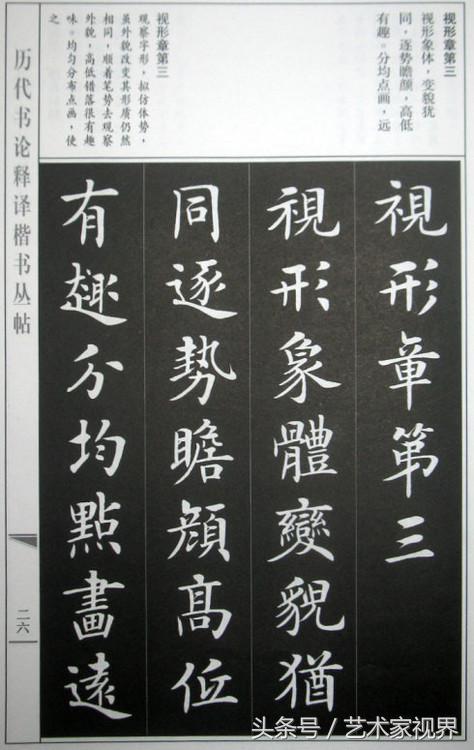 视形章第三
视形象体，变貌犹
同，逐势瞻颜，高低
有趣。分均点画，远
视形章第三
观察字形，拟仿体势，
虽外貌改变其形质仍然
相同，顺着笔势去观察
外貌，高低错落很有趣
味。均匀分布点画，使
之
視形章第三
視形象體變貌猶
同逐勢瞻顏高低
有趣分均點畫遠
历代书论释译楷书丛帖
二六
头条号／艺术家视界